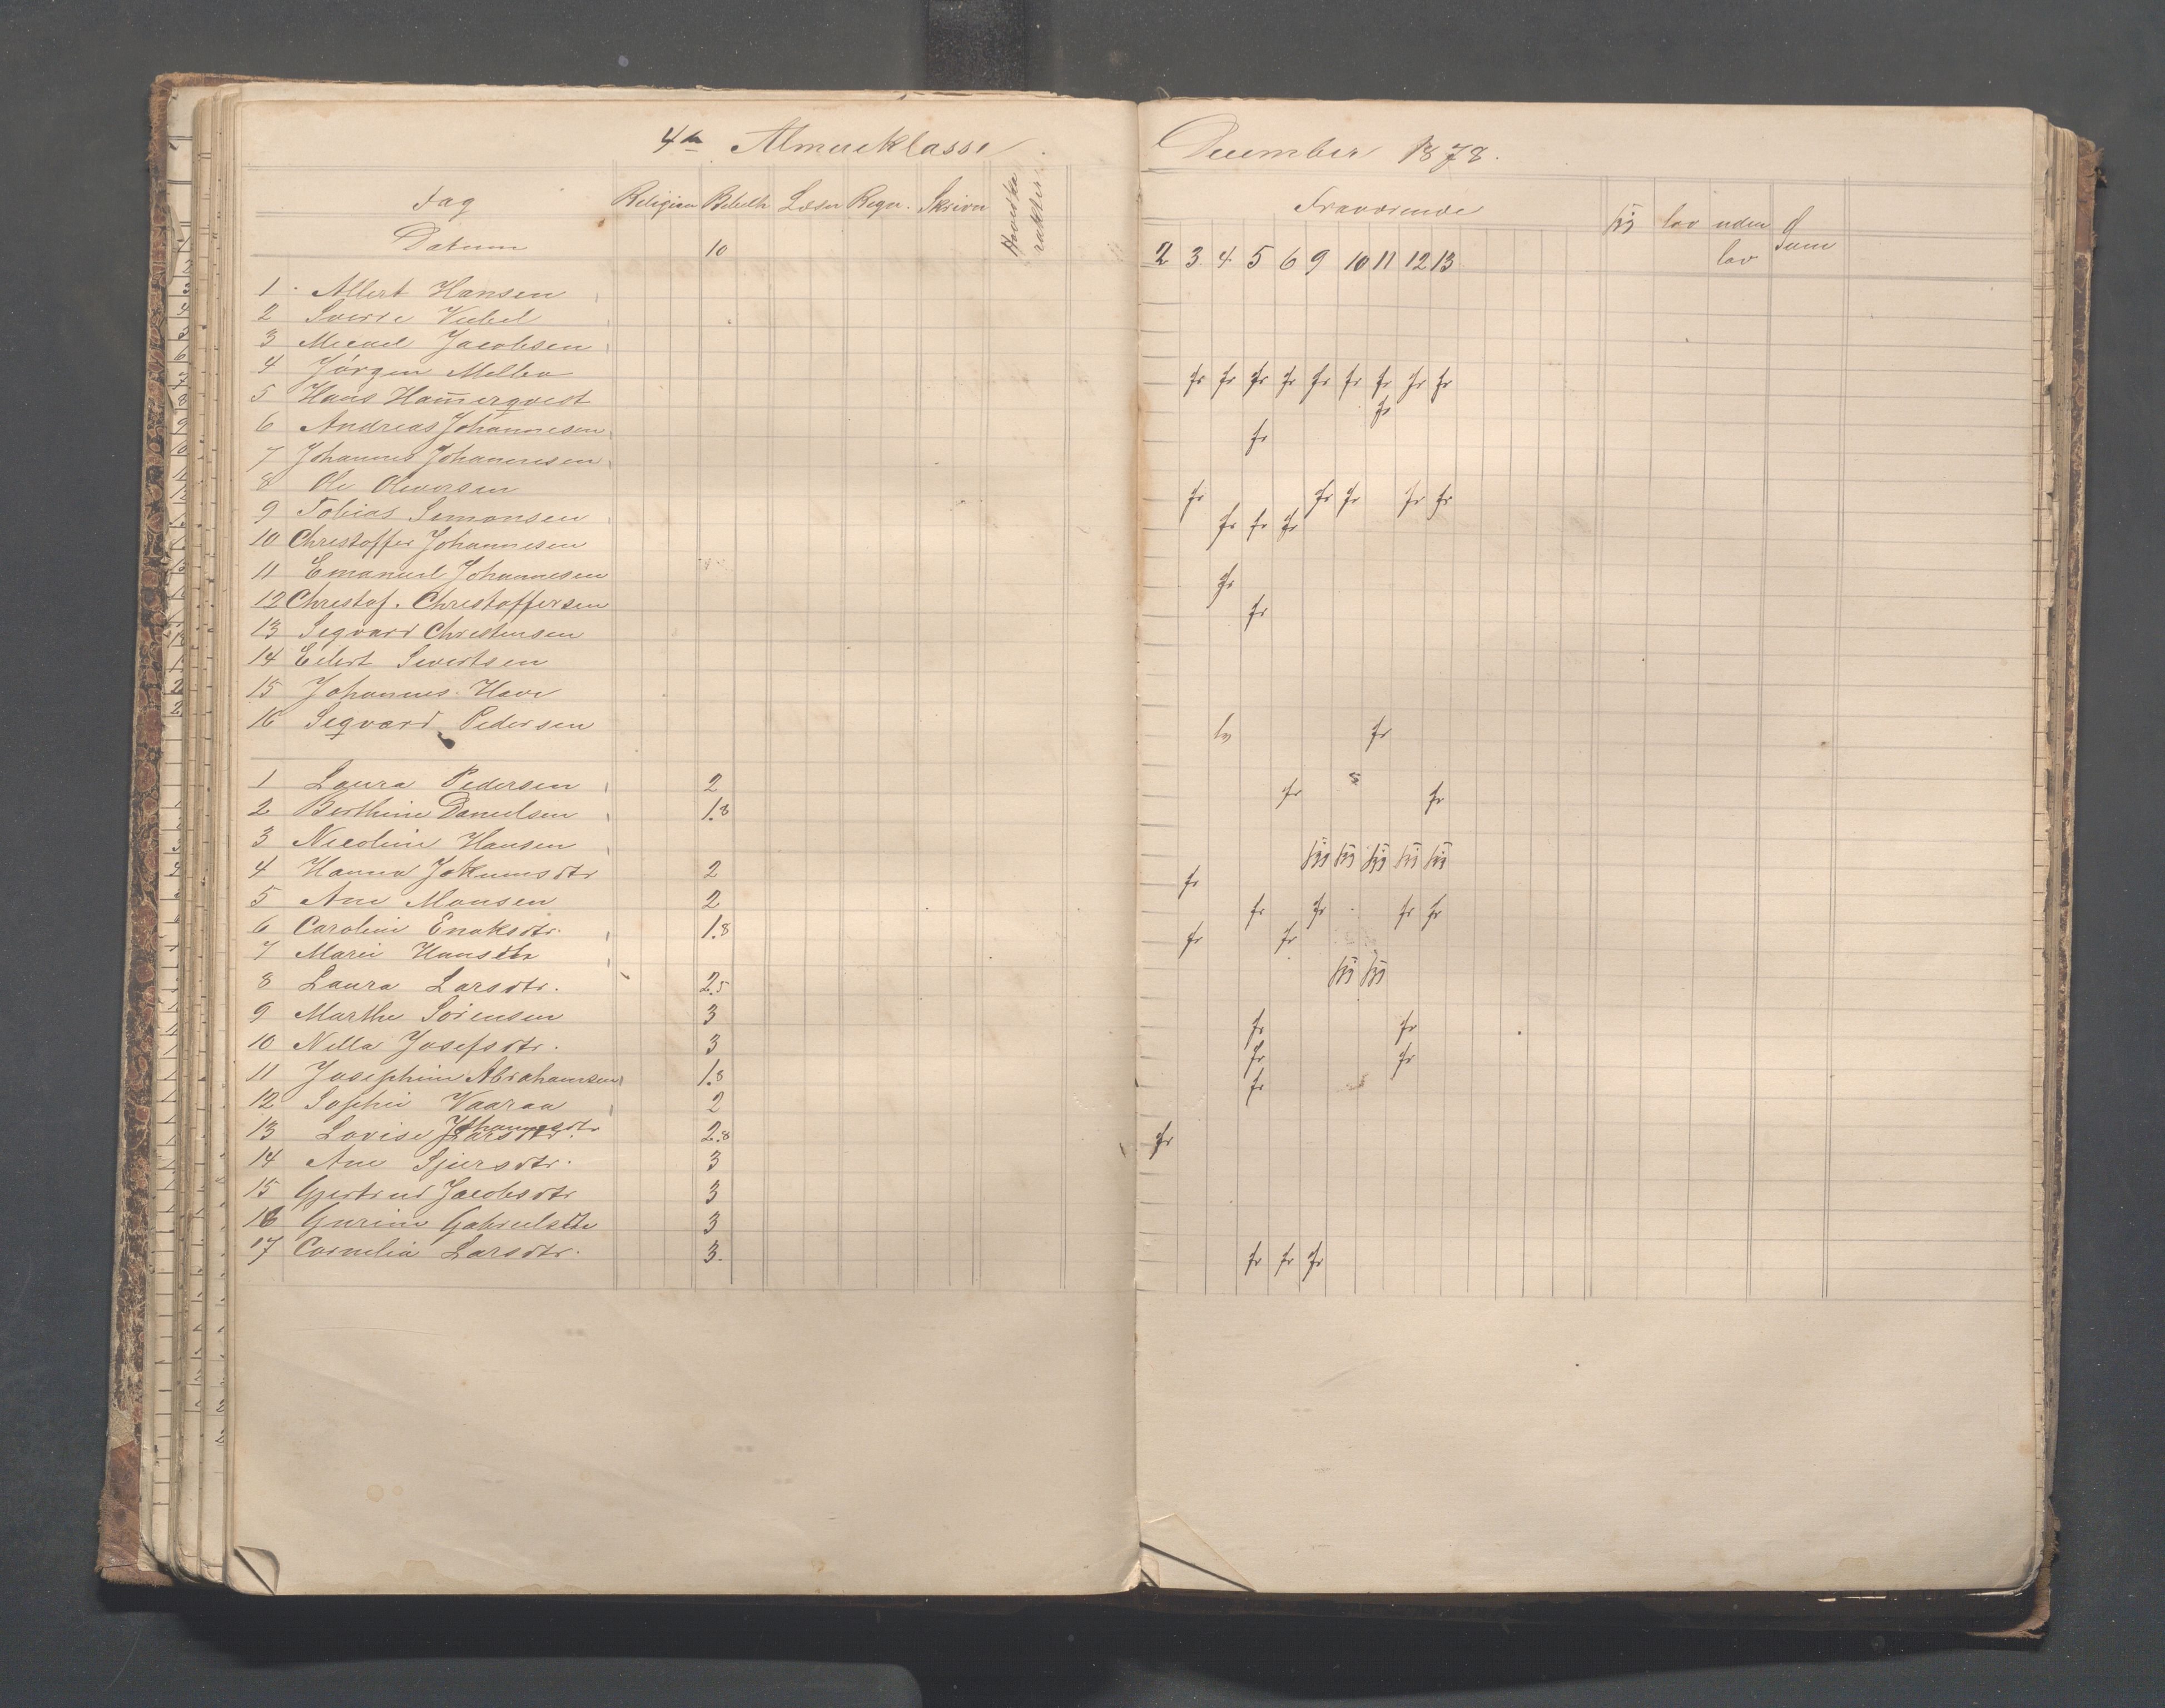 4de Almueklasse
Fag Religion Bibelh Læsn Regn. Skrivn Hovedka rakter
Datum 10
1 Albert Hansen
2 Sverre
3 Micael Jacobsen
4 Jörgen Melbo
5 Hans Ham̄erqvest
6 Andreas Johannesen
7 Johannes Johannesen
8 Ole Oleversen
9 Tobias Simonsen
10 Christoffer Johannesen
11 Emanuel Johannesen
12 Christof. Christoffersen
13 Segvard Christensen
14 Eilert Sivertsen
15 Johannes
16 Segvard Pedersen
1 Laura Pedersen 2
2 Berthine Danielsen 1.8
3 Nicoline Hansen
4 Hanna Jokumsdtr 2
5 Ane Monsen 2
6 Caroline Enoksdtr. 1.8
7 Marie Hansdtr
8 Laura Larsdtr. 2.5
9 Marthe Sörensen 3
10 Nella Josefsdtr. 3
11 Josephine Abrahamsen 1.8
12 Sophie Vaaraa 2
13 Lovise Johannesdtr 2.8
14 Ane Sjursdtr. 3
15 Gjertrud Jacobsdtr 3
16 Gurine Gabrielsdtr 3
17 Cornelia Larsdtr. 3.
December 1878.
Fraværende syg lov uden lov Sum
2 3 4 5 6 9 10 11 12 13
fr fr fr fr fr fr fr fr fr
fr
fr
fr fr fr fr fr
fr fr fr
fr
fr
lv fr
fr fr
syg syg syg syg syg
fr
fr fr fr fr
fr fr
syg syg
fr fr
fr fr
fr
fr
fr fr fr